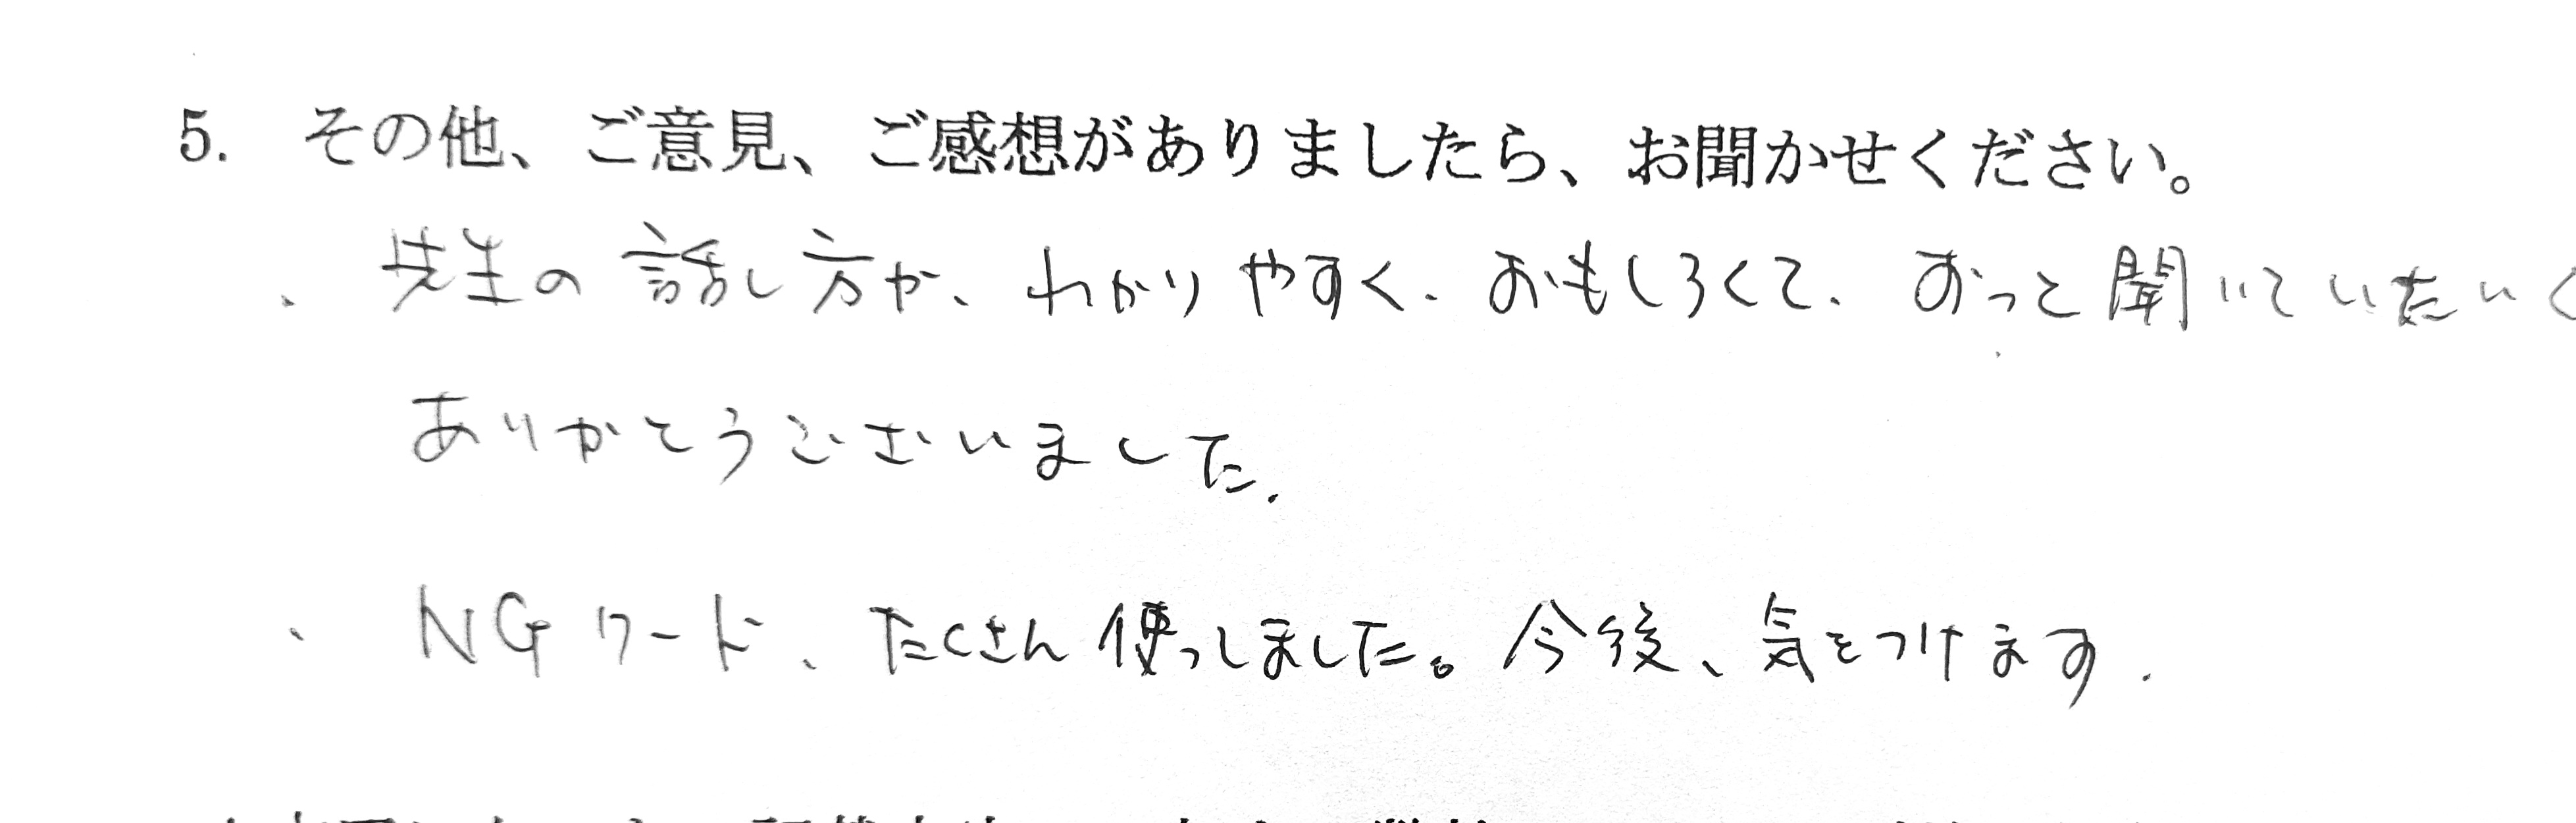 5. その他、ご意見、ご感想がありましたら、お聞かせください。
・先生の話し方が、わかりやすく、おもしろくて、ずっと聞いていたいく
ありがとうございました.
・NGワード、たくさん使っしました。今後、気をつけます.